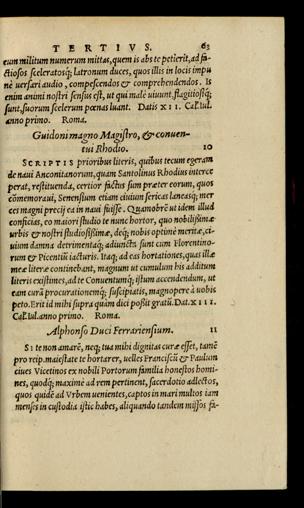 TERTIVS. 63
eum militum numerum mittas, quem is abs te petierit, ad fa-
ctiosos sceleratosq; latronum duces, quos illis in locis impu
nè uersari audio, compescendos & comprehendendos. Is
enim animi nostri sensus est, ut qui malè uiuunt, flagitiosiq;
sunt, suorum scelerum poenas luant. Datis XII. Cal. Iul.
anno primo. Roma.
Guidoni magno Magistro, & conuen-
tui Rhodio. 10
SCRIPTIS prioribus literis, quibus tecum egeram
de naui Anconitanorum, quam Santolinus Rhodius interce
perat, restituenda, certior factus sum præter eorum, quos
cōmemoraui, Senensium etiam ciuium sericas laneasq; mer
ces magni precij ea in naui fuisse. Quamobrē ut idem illud
conficias, eo maiori studio te nunc hortor, quo nobilißimæ
urbis & nostri studiosißimæ, deq; nobis optimè meritæ, ci-
uium damna detrimentaq; adiuncta sunt cum Florentino-
rum & Picentiū iacturis. Itaq; ad eas hortationes, quas illæ
meæ literæ continebant, magnum ut cumulum his additum
literis existimes, ad te Conuentumq; istum accendendum, ut
eam curā procurationemq; suscipiatis, magnopere à uobis
peto. Erit id mihi supra quàm dici poßit gratū. Da. XIII.
Cal. Iul. anno primo. Roma.
Alphonso Duci Ferrariensium. 11
SI te non amarē, neq; tua mihi dignitas curæ esset, tamē
pro reip. maiestate te hortarer, uelles Franciscū & Paulum
ciues Vicetinos ex nobili Portorum familia honestos homi-
nes, quodq; maximè ad rem pertinent, sacerdotio adlectos,
quos quidē ad Vrbem uenientes, captos in mari multos iam
menses in custodia istic habes, aliquando tandem missos fa-